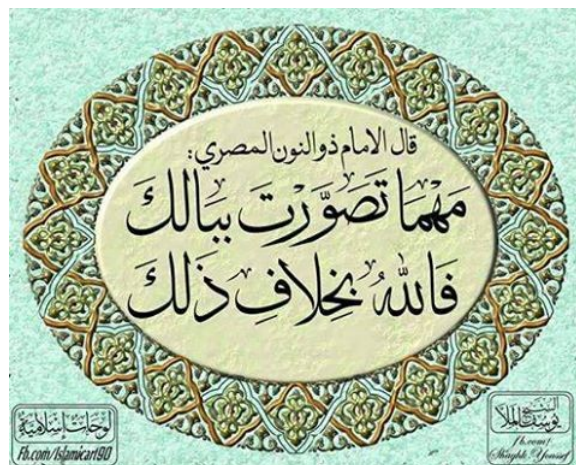 قال الامام ذو النون المصري:
مَهْمَا تَصَوَّرْتَ بِبَالِكَ
فَاللهُ بِخِلَافِ ذَلِكَ
لوحات إسلامية
Fb.com/Islamicart90
الشيخ
يوسف الملا
fb.com/
Shaykh.Youssef